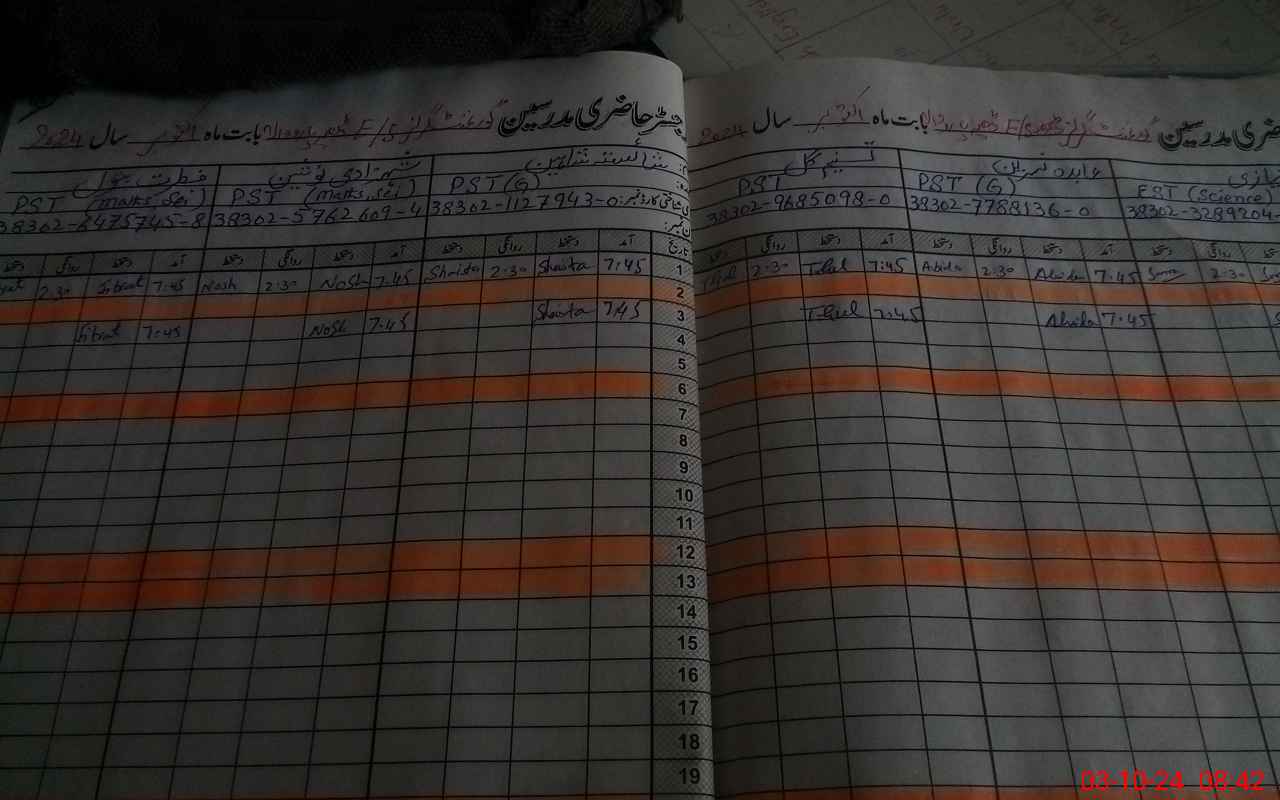 رجسٹر حاضری مدرسین گورنمنٹ گرلز E/S بابت ماہ اکتوبر سال 2024
شائستہ شاہین
PST (G) PST (Maths, Sci) PST (Maths, Sci)
38302-1127943-0 38302-5762609-4 38302-6475745-8
تاریخ آمد دستخط روانگی دستخط آمد دستخط روانگی دستخط آمد دستخط روانگی دستخط
1 7:45 Shaista 2:30 Shaista 7:45 Nosh 2:30 Nosh 7:45 Fitrat 2:30
2
3 7:45 Shaista 7:45 Nosh 7:45 Fitrat
4
5
6
7
8
9
10
11
12
13
14
15
16
17
18
19
حاضری مدرسین گورنمنٹ گرلز E/S بابت ماہ اکتوبر سال 2024
عابدہ نسرین
EST (Science) PST (G) PST
38302-3289204- 38302-7788136-0 38302-9685098-0
روانگی دستخط آمد دستخط روانگی دستخط آمد دستخط روانگی دستخط
2:30 7:45 Abida 2:30 Abida 7:45 2:30
7:45 Abida 7:45
03-10-24 08:42